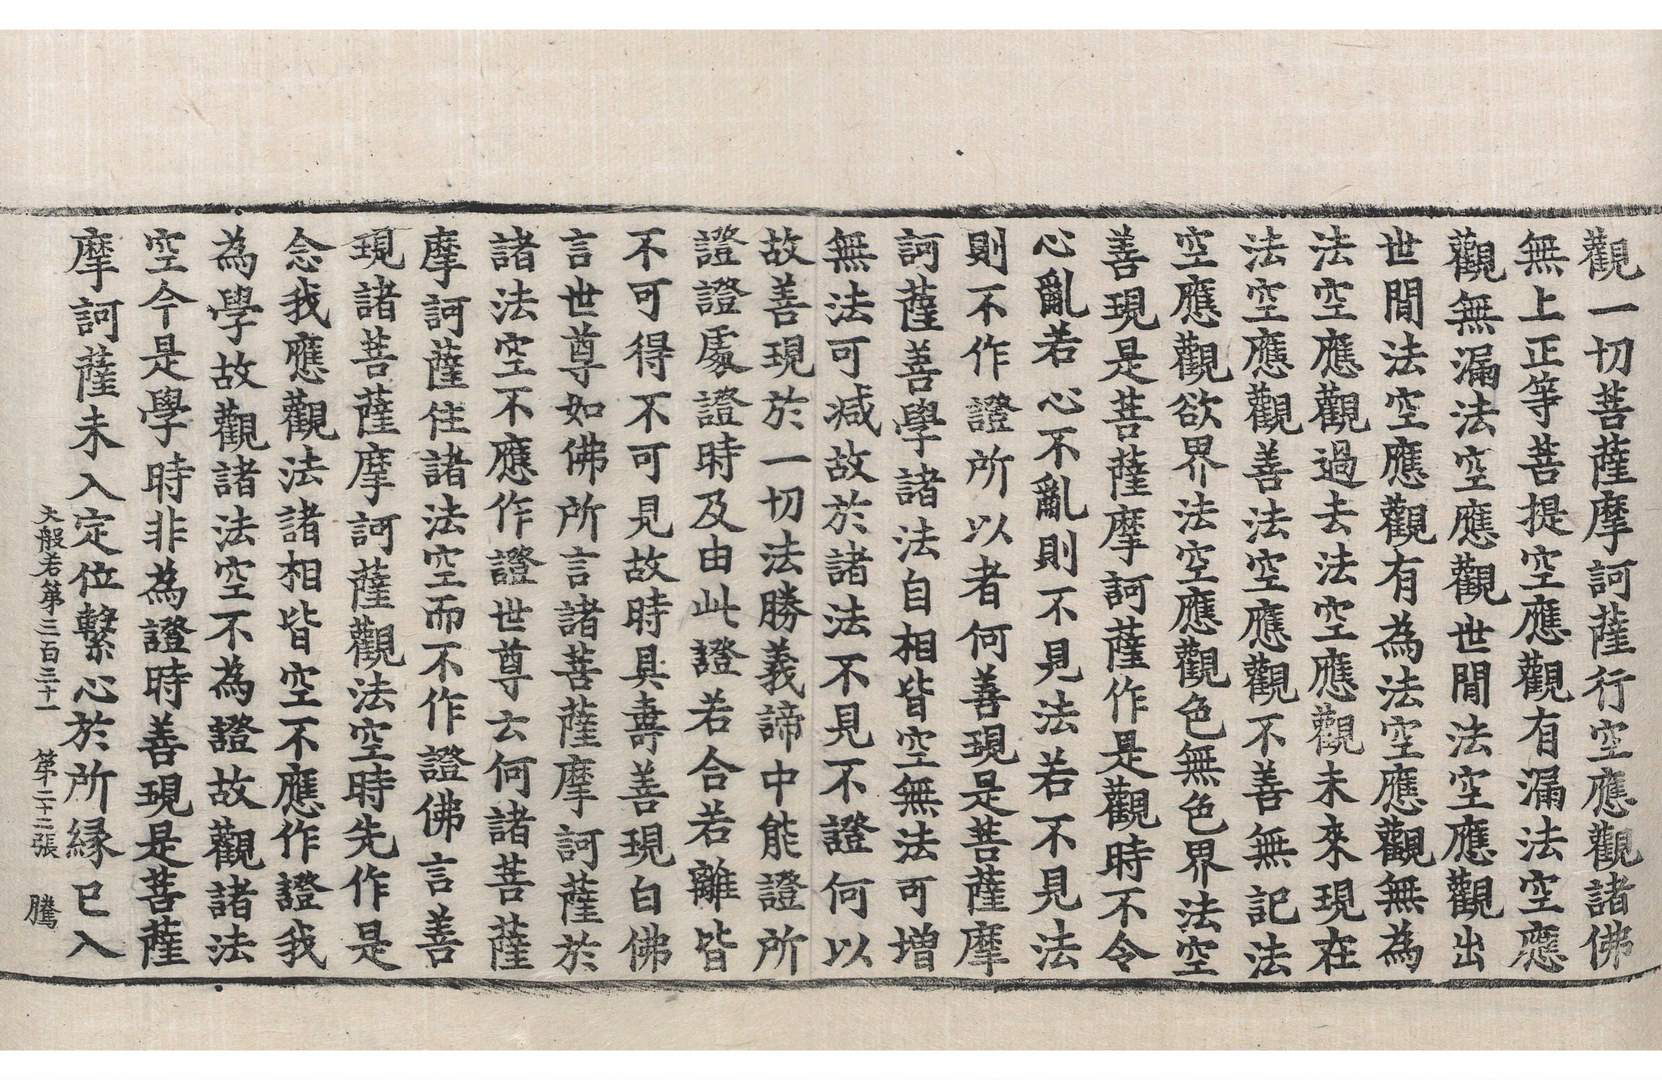 觀一切菩薩摩訶薩行空應觀諸佛
無上正等菩提空應觀有漏法空應
觀無漏法空應觀世間法空應觀出
世間法空應觀有為法空應觀無為
法空應觀過去法空應觀未來現在
法空應觀善法空應觀不善無記法
空應觀欲界法空應觀色無色界法空
善現是菩薩摩訶薩作是觀時不令
心亂若心不亂則不見法若不見法
則不作證所以者何善現是菩薩摩
訶薩善學諸法自相皆空無法可增
無法可減故於諸法不見不證何以
故善現於一切法勝義諦中能證所
證證處證時及由此證若合若離皆
不可得不可見故時具壽善現白佛
言世尊如佛所言諸菩薩摩訶薩於
諸法空不應作證世尊云何諸菩薩
摩訶薩住諸法空而不作證佛言善
現諸菩薩摩訶薩觀法空時先作是
念我應觀法諸相皆空不應作證我
為學故觀諸法空不為證故觀諸法
空今是學時非為證時善現是菩薩
摩訶薩未入定位繫心於所緣已入
大般若第三百三十一 第二十二張 騰